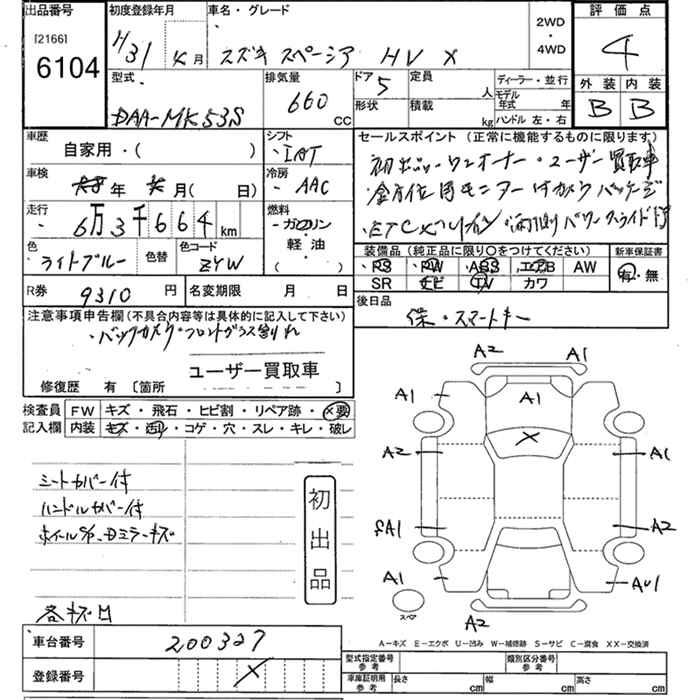 出品番号 初度登録年月 車名・グレード 2WD ・ 4WD 評価点
[2166]
6104
H31年 月 スズキ スペーシア HV X 4
型式 排気量 ドア 定員 ディーラー・並行
DAA-MK53S 660 CC 5 人 モデル年式 年
形状 積載 kg ハンドル 左・右
外装 内装
B B
車歴 シフト セールスポイント (正常に機能するものに限ります)
自家用・( ) ・IAT
初出品・ワンオーナー・ユーザー買取車
車検 年 月( 日) 冷房 ・AAC
全方位用モニター付カメラパッケージ
走行 6万3千664km 燃料 ・ガソリン ・軽油
・ETC
色 ライトブルー 色替 色コード ZYW
装備品 (純正品に限り〇をつけてください) 新車保証書
・PS ・PW ・ABS ・エアB AW 有・無
SR ナビ TV カワ
R券 9310円 名変期限 月 日
後日品 保・スマートキー
注意事項申告欄(不具合内容等は具体的に記入して下さい)
・バックカメラ・フロントガラス割れ
ユーザー買取車
修復歴 有〔箇所
検査員記入欄 FW キズ・飛石・ヒビ割・リペア跡・×要
内装 キズ・汚れ・コゲ・穴・スレ・キレ・破レ
シートカバー付
ハンドルカバー付
ホイールS
各キズ凹
初出品
A2 A1
A1 A1 A1
A2 X A1
A1 A2
A1 AU1
A2
スペア
A-キズ E-エクボ U-凹み W-補修跡 S-サビ C-腐食 XX-交換済
車台番号 200327
登録番号 X
型式指定番号 参考 類別区分番号 参考
車庫証明用 参考 長さ cm 幅 cm 高さ cm